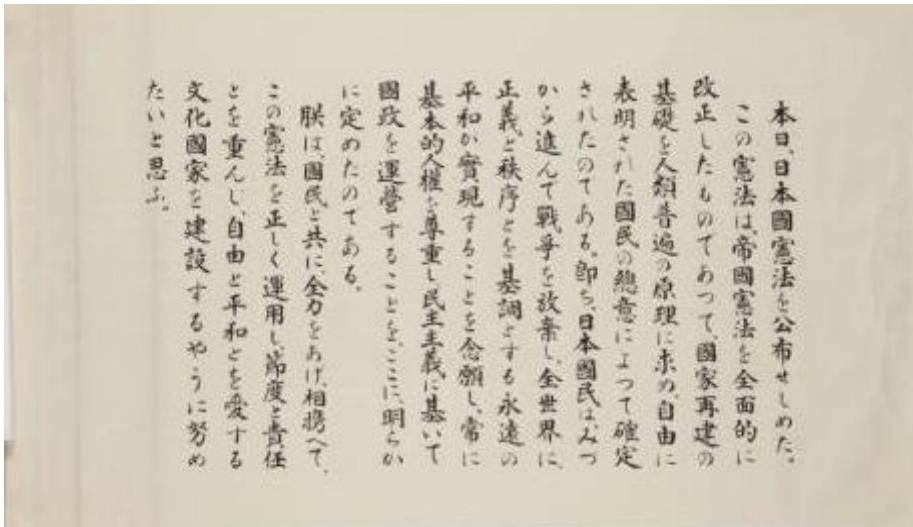 本日、日本國憲法を公布せしめた。
この憲法は、帝國憲法を全面的に
改正したものてあつて、國家再建の
基礎を人類普遍の原理に求め、自由に
表明された國民の總意によつて確定
されたのてある。即ち、日本國民は、みつ
から進んて戰爭を放棄し、全世界に、
正義と秩序とを基調とする永遠の
平和か實現することを念願し、常に
基本的人權を尊重し、民主主義に基いて
國政を運營することを、ここに、明らか
に定めたのてある。
朕は、國民と共に、全力をあけ、相携へて、
この憲法を正しく運用し、節度と責任
とを重んし、自由と平和とを愛する
文化國家を建設するやうに努め
たいと思ふ。